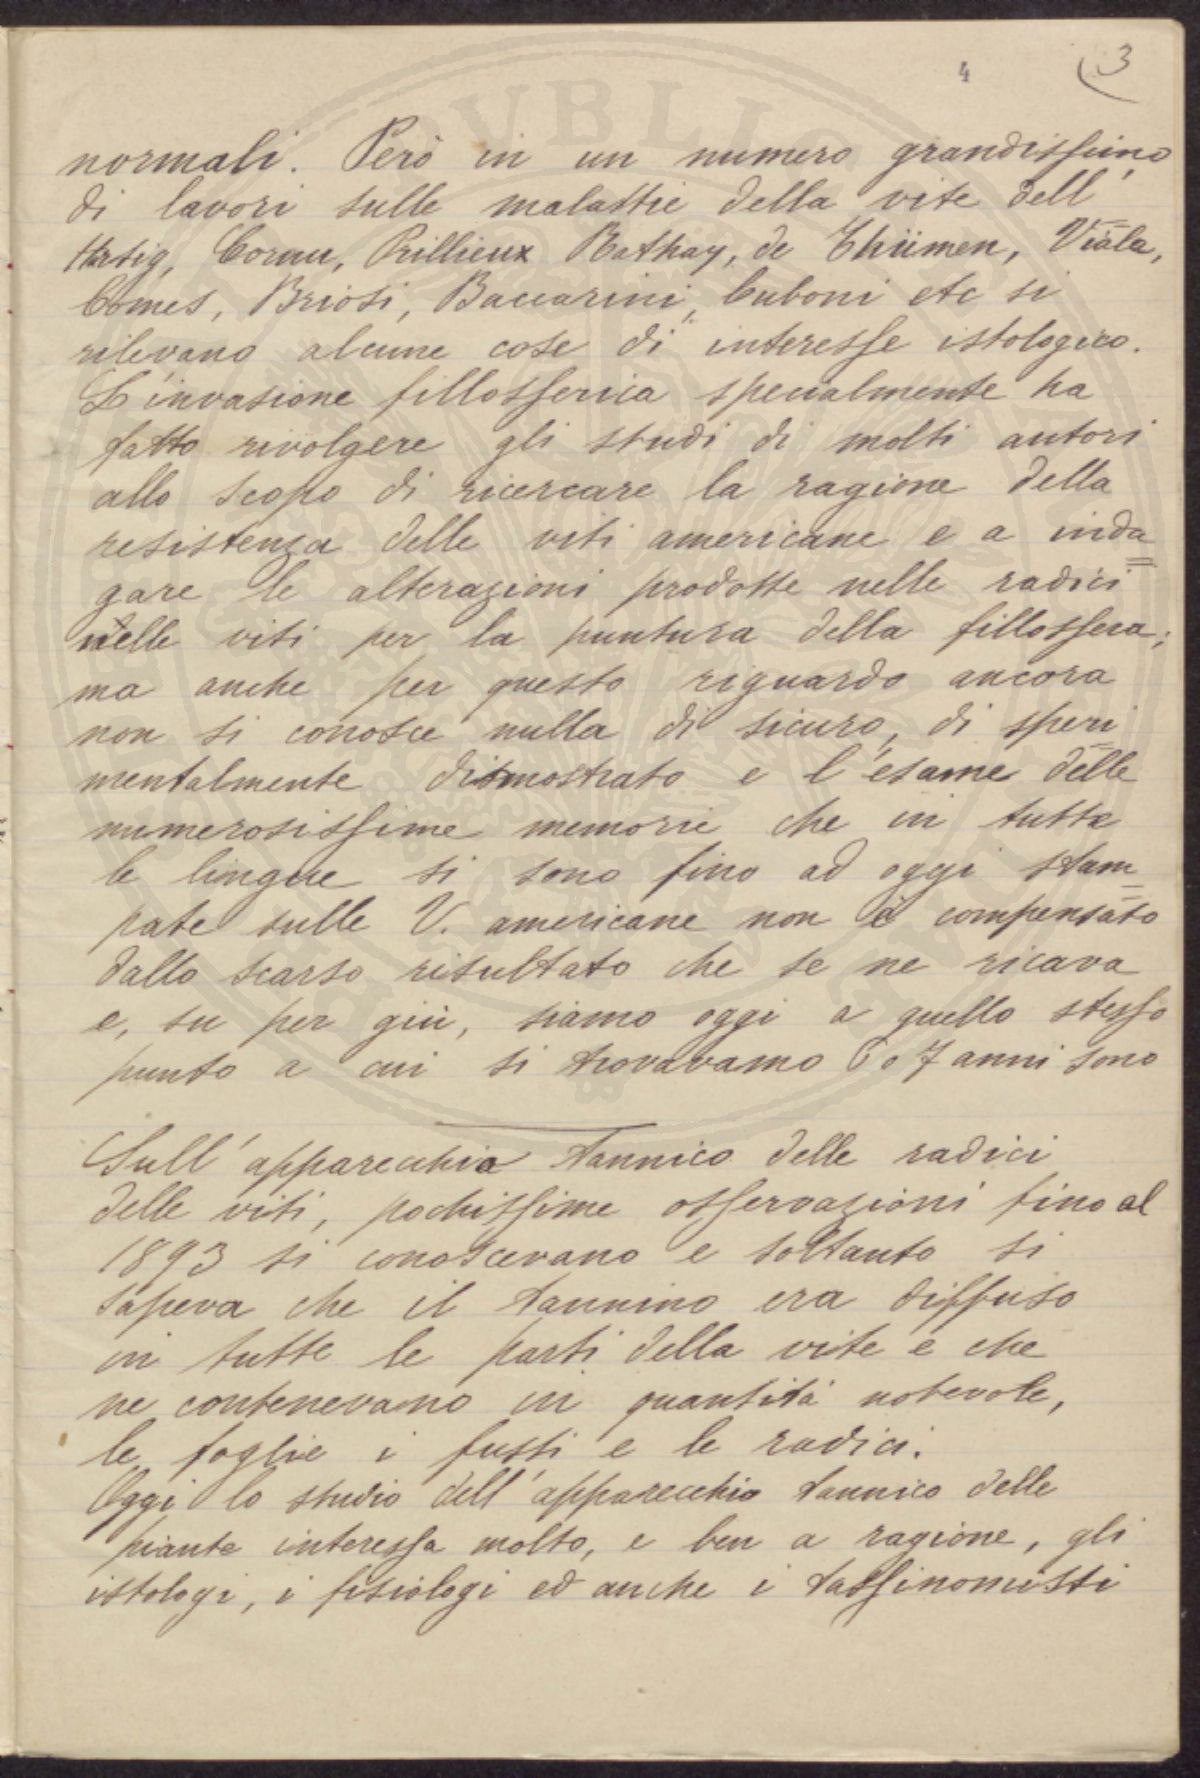 4 3
normali. Però in un numero grandissimo
di lavori sulle malattie della vite dell'
Hartig, Cornu, Prillieux Rathay, de Thümen, Viala,
Comes, Briosi, Baccarini, Cuboni etc si
rilevano alcune cose di interesse istologico.
L'invasione fillosserica specialmente ha
fatto rivolgere gli studi di molti autori
allo scopo di ricercare la ragione della
resistenza delle viti americane e a inda=
gare le alterazioni prodotte nelle radici
delle viti per la puntura della fillossera;
ma anche per questo riguardo ancora
non si conosce nulla di sicuro, di speri=
mentalmente dimostrato e l'esame delle
numerosissime memorie che in tutte
le lingue si sono fino ad oggi stam=
pate sulle V. americane non è compensato
dallo scarso risultato che se ne ricava
e, su per giù, siamo oggi a quello stesso
punto a cui si trovavamo 6 o 7 anni sono
Sull'apparecchio tannico delle radici
delle viti, pochissime osservazioni fino al
1893 si conoscevano e soltanto si
sapeva che il tannino era diffuso
in tutte le parti della vite e che
ne contenevano in quantità notevole,
le foglie i fusti e le radici.
Oggi lo studio dell'apparecchio tannico delle
piante interessa molto, e ben a ragione, gli
istologi, i fisiologi ed anche i tassinomisti
PVBLIC